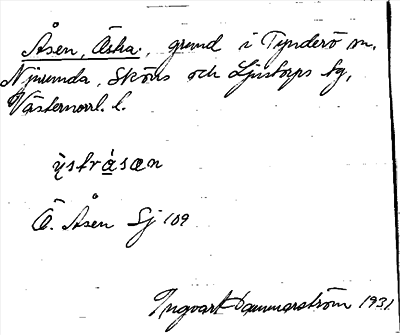 Åsen, Östra, grund i Tynderö sn,
Njurunda, Sköns och Ljustorps tg,
Västernorrl. l.
ỳstrásɑn
Ö. Åsen Sj 109
Ingvart Hammarström 1931